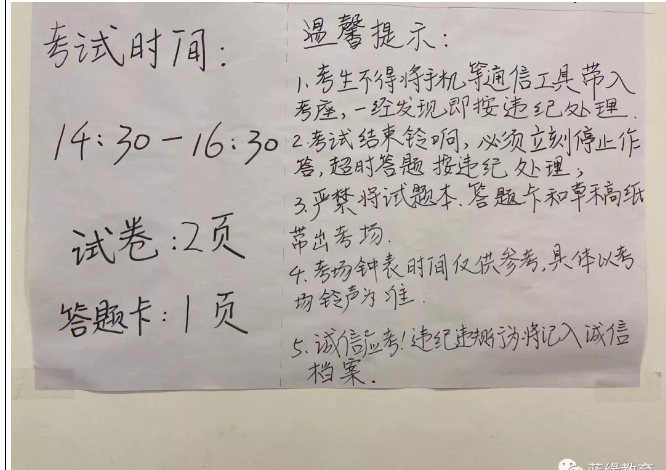 考试时间：
14：30－16：30
试卷：2页
答题卡：1页
温馨提示：
1、考生不得将手机等通信工具带入
考座，一经发现即按违纪处理．
2.考试结束铃响，必须立刻停止作
答，超时答题按违纪处理；
3.严禁将试题本.答题卡和草稿纸
带出考场．
4.考场钟表时间仅供参考，具体以考
场铃声为准．
5、诚信应考！违纪违规行为将记入诚信
档案．
蓝缘教育